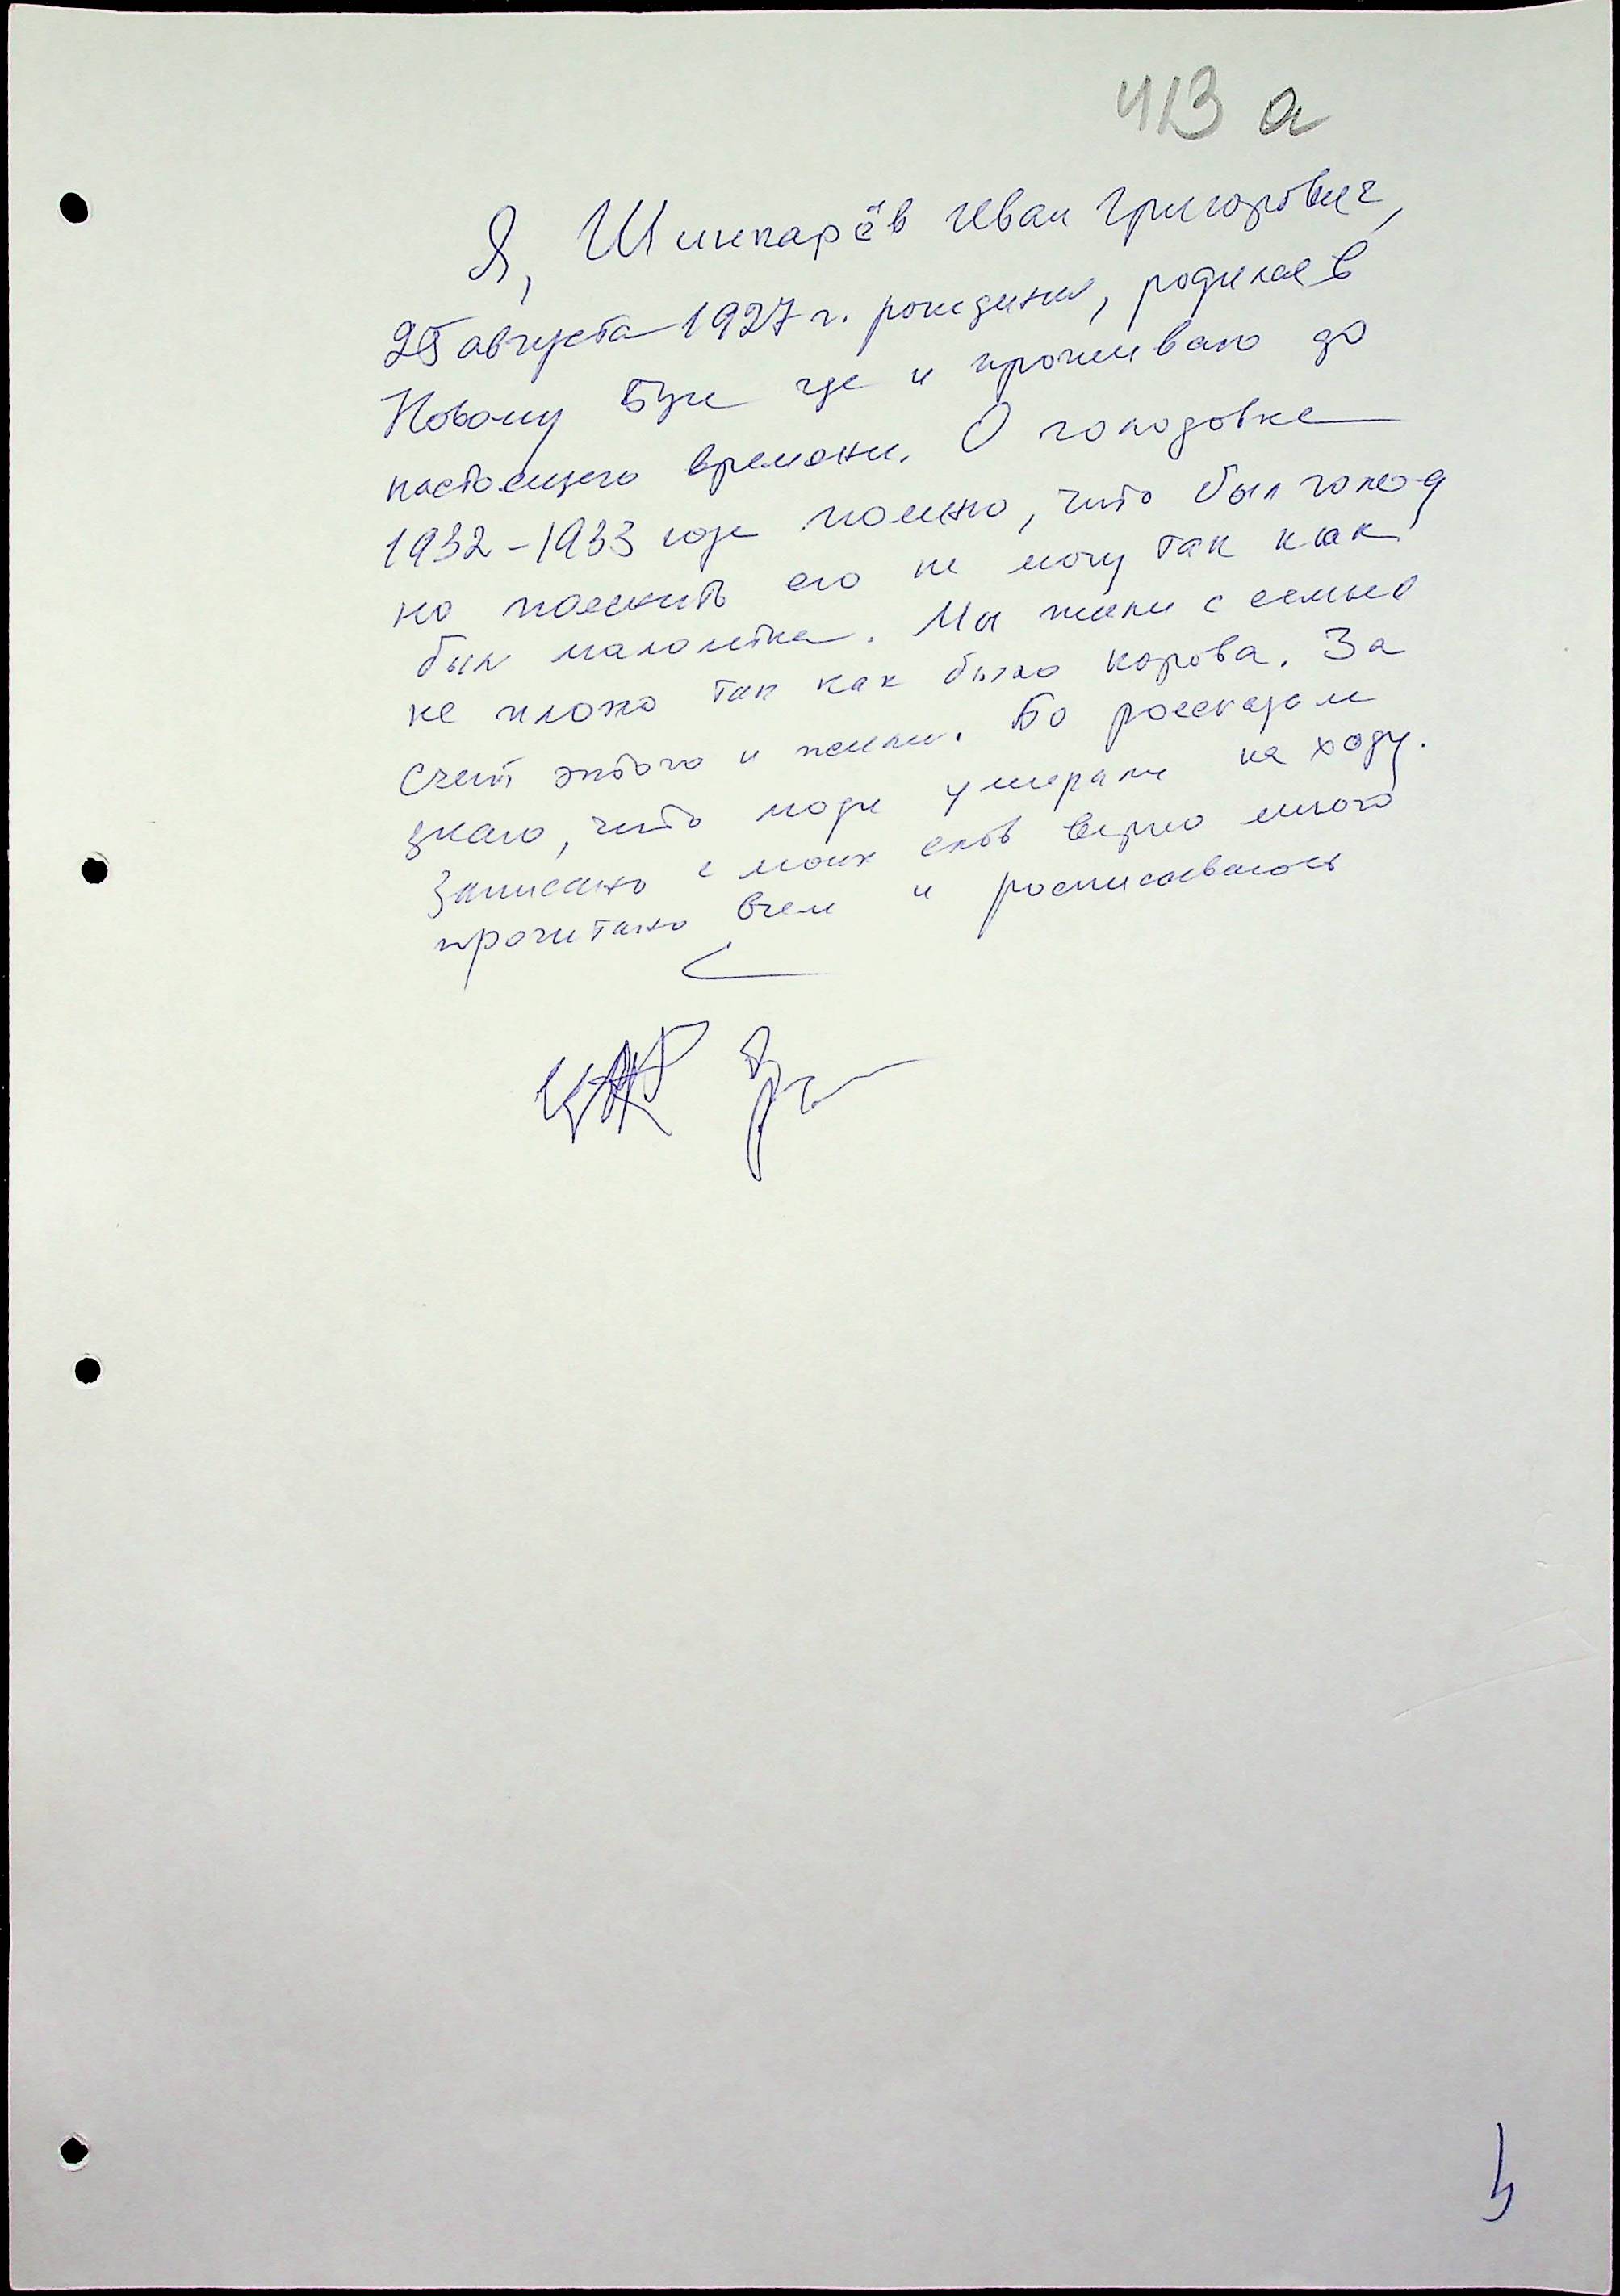 413 а
Я, Шинкарёв Иван Григорович,
25 августа 1927 г. рождения, родился в
Новому Бузи где и проживаю до
настоящего времени. О голодовке
1932-1933 годе помню, что был голод
но пояснить его не могу так как
был малолетка. Мы жили с семьёй
не плохо так как было корова. За
счет этого и жили. Бо россказам
знаю, что люди умерали на ходу.
Записано с моих слов верно много
прочитано всем и росписываюсь